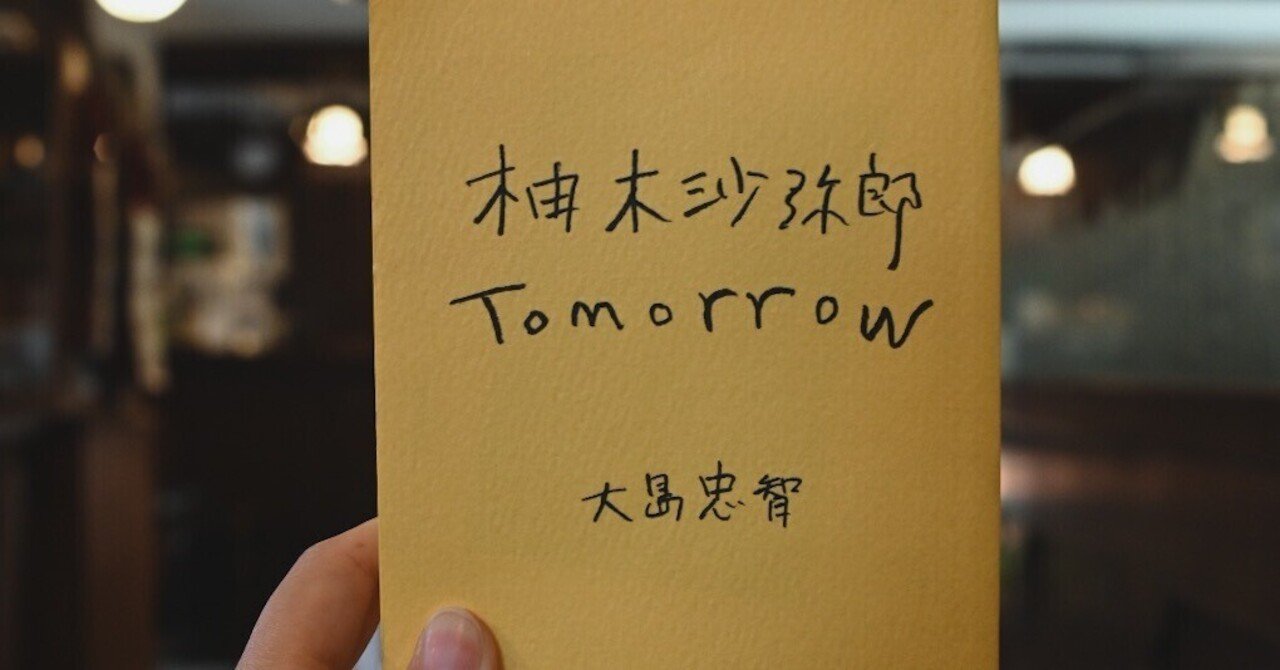 柚木沙弥郎
Tomorrow
大島忠智